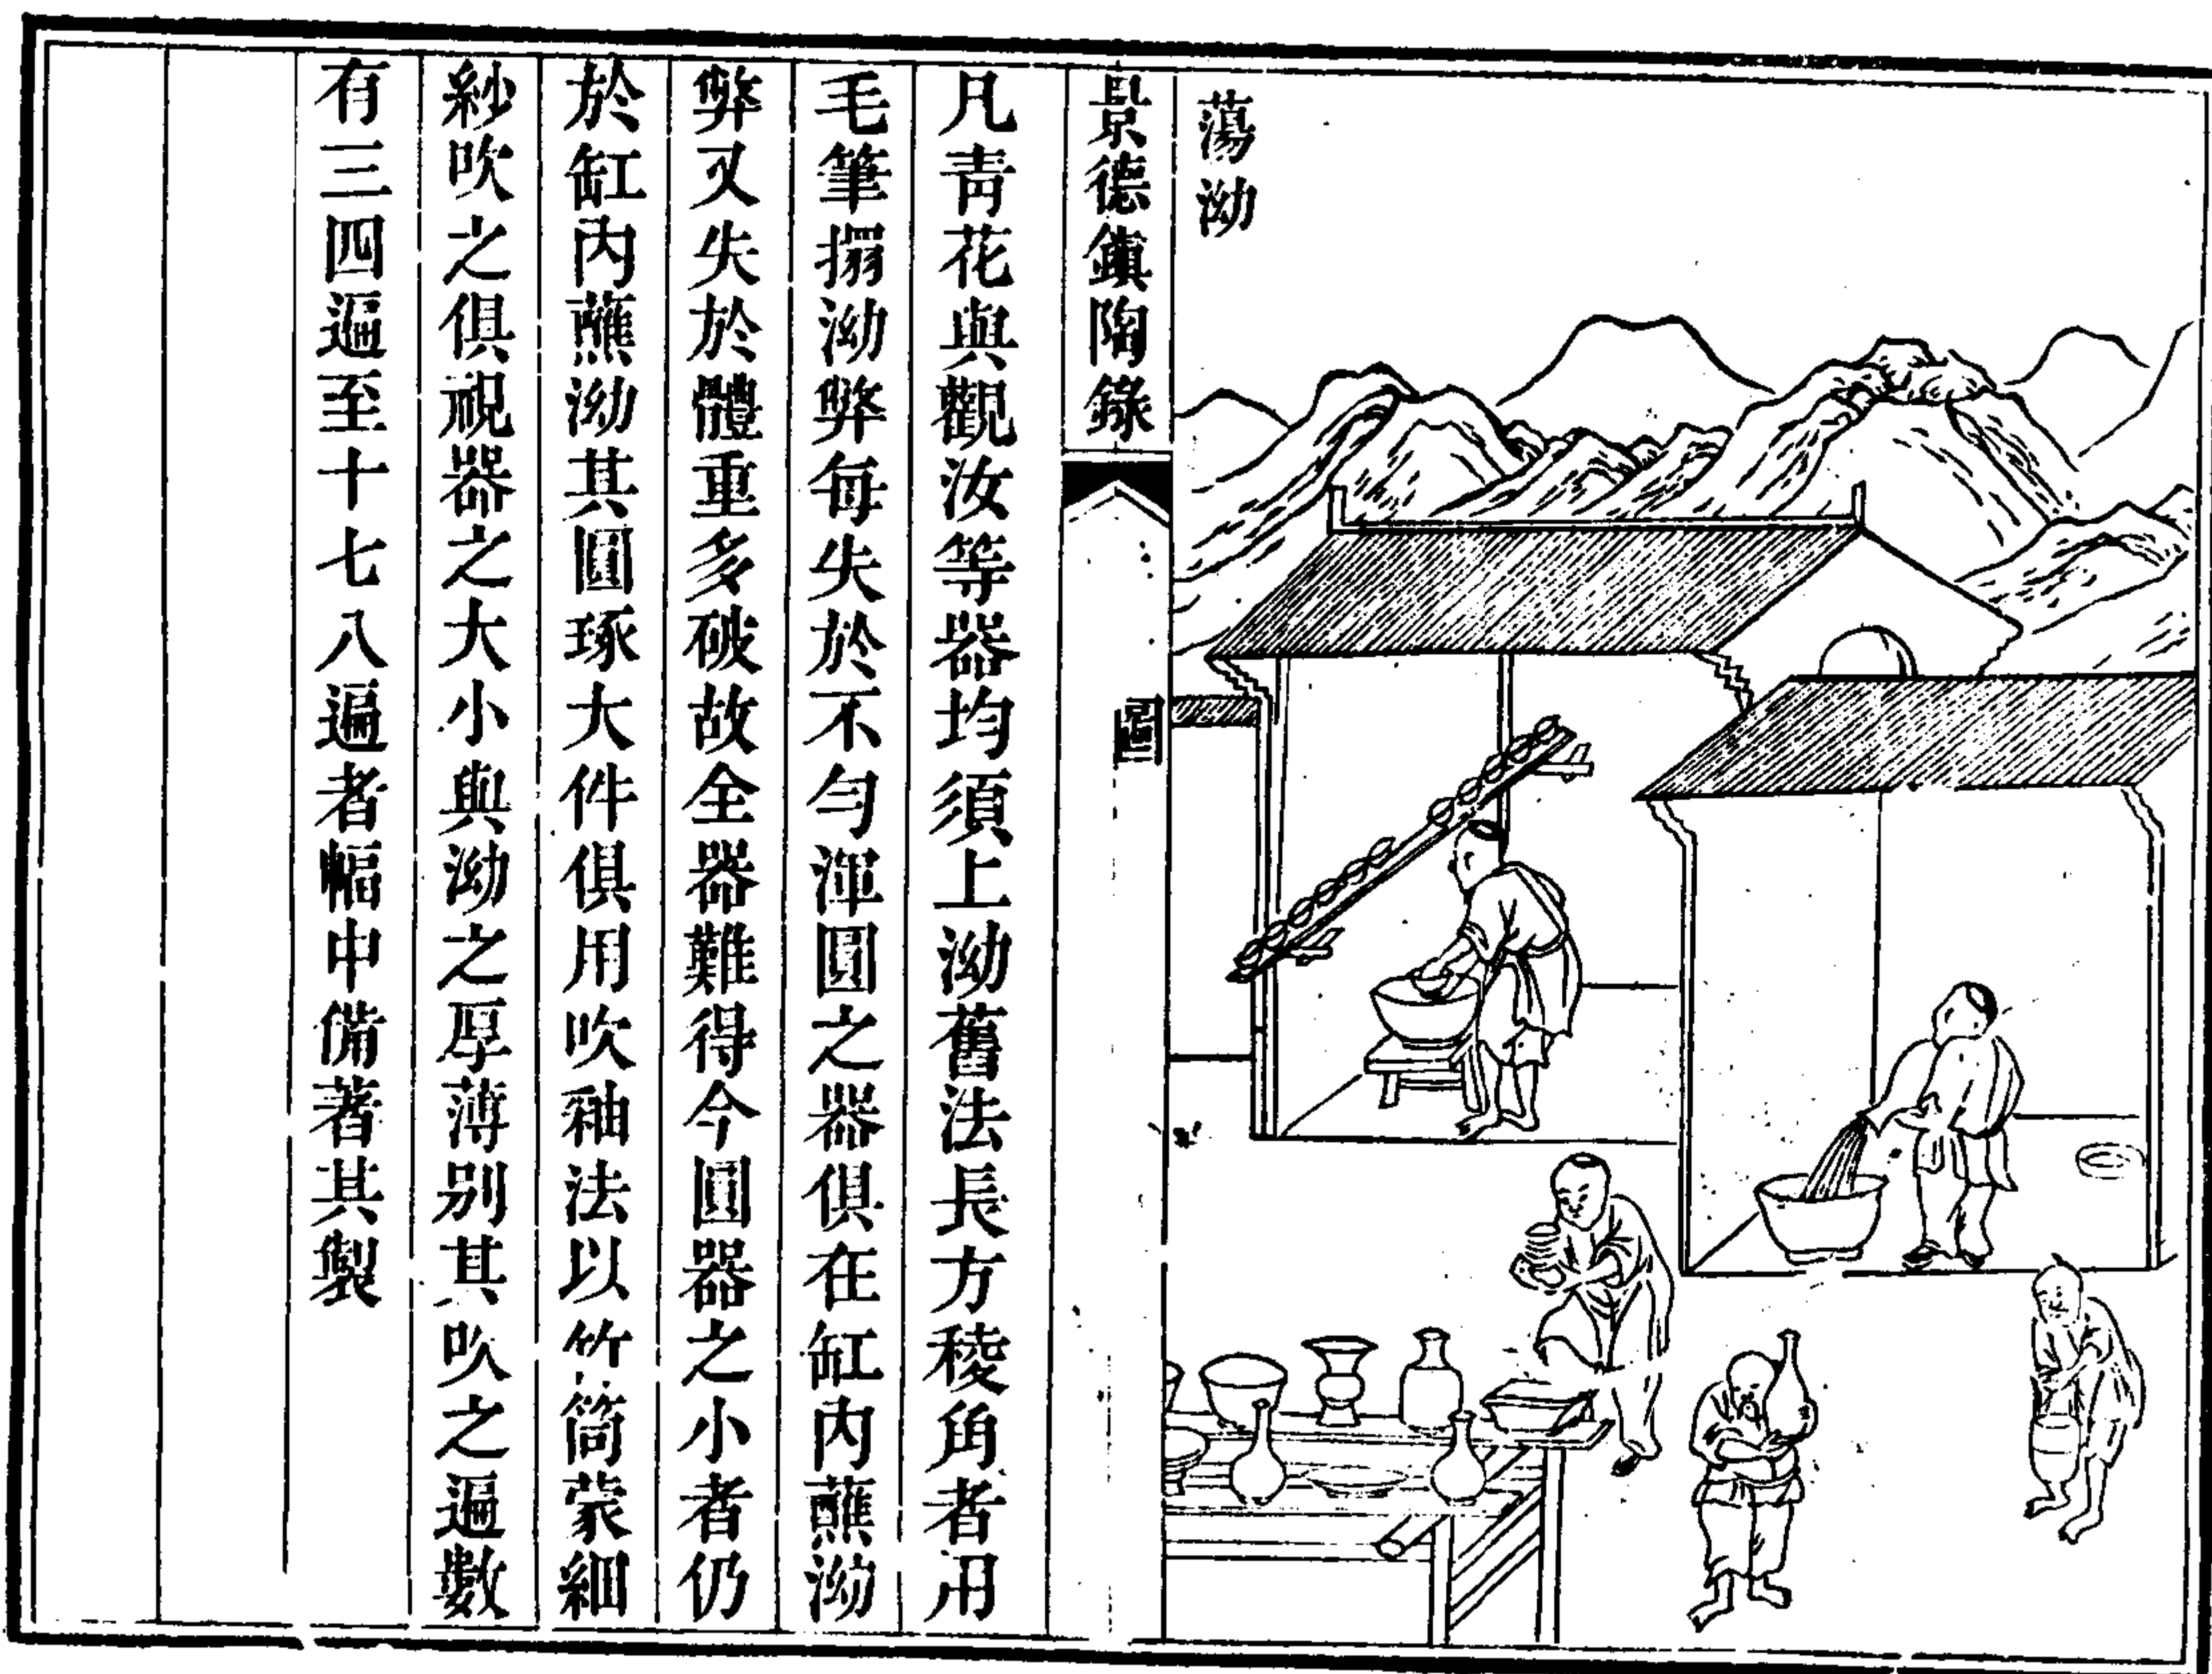 蕩泑
景德鎮陶錄
圖
凡青花與觀汝等器均須上泑舊法長方稜角者用
毛筆搨泑弊每失於不勻渾圓之器俱在缸內蘸泑
弊又失於體重多破故全器難得今圓器之小者仍
於缸內蘸泑其圓琢大件俱用吹釉法以竹筒蒙細
紗吹之俱視器之大小與泑之厚薄別其吹之遍數
有三四遍至十七八遍者幅中備著其製